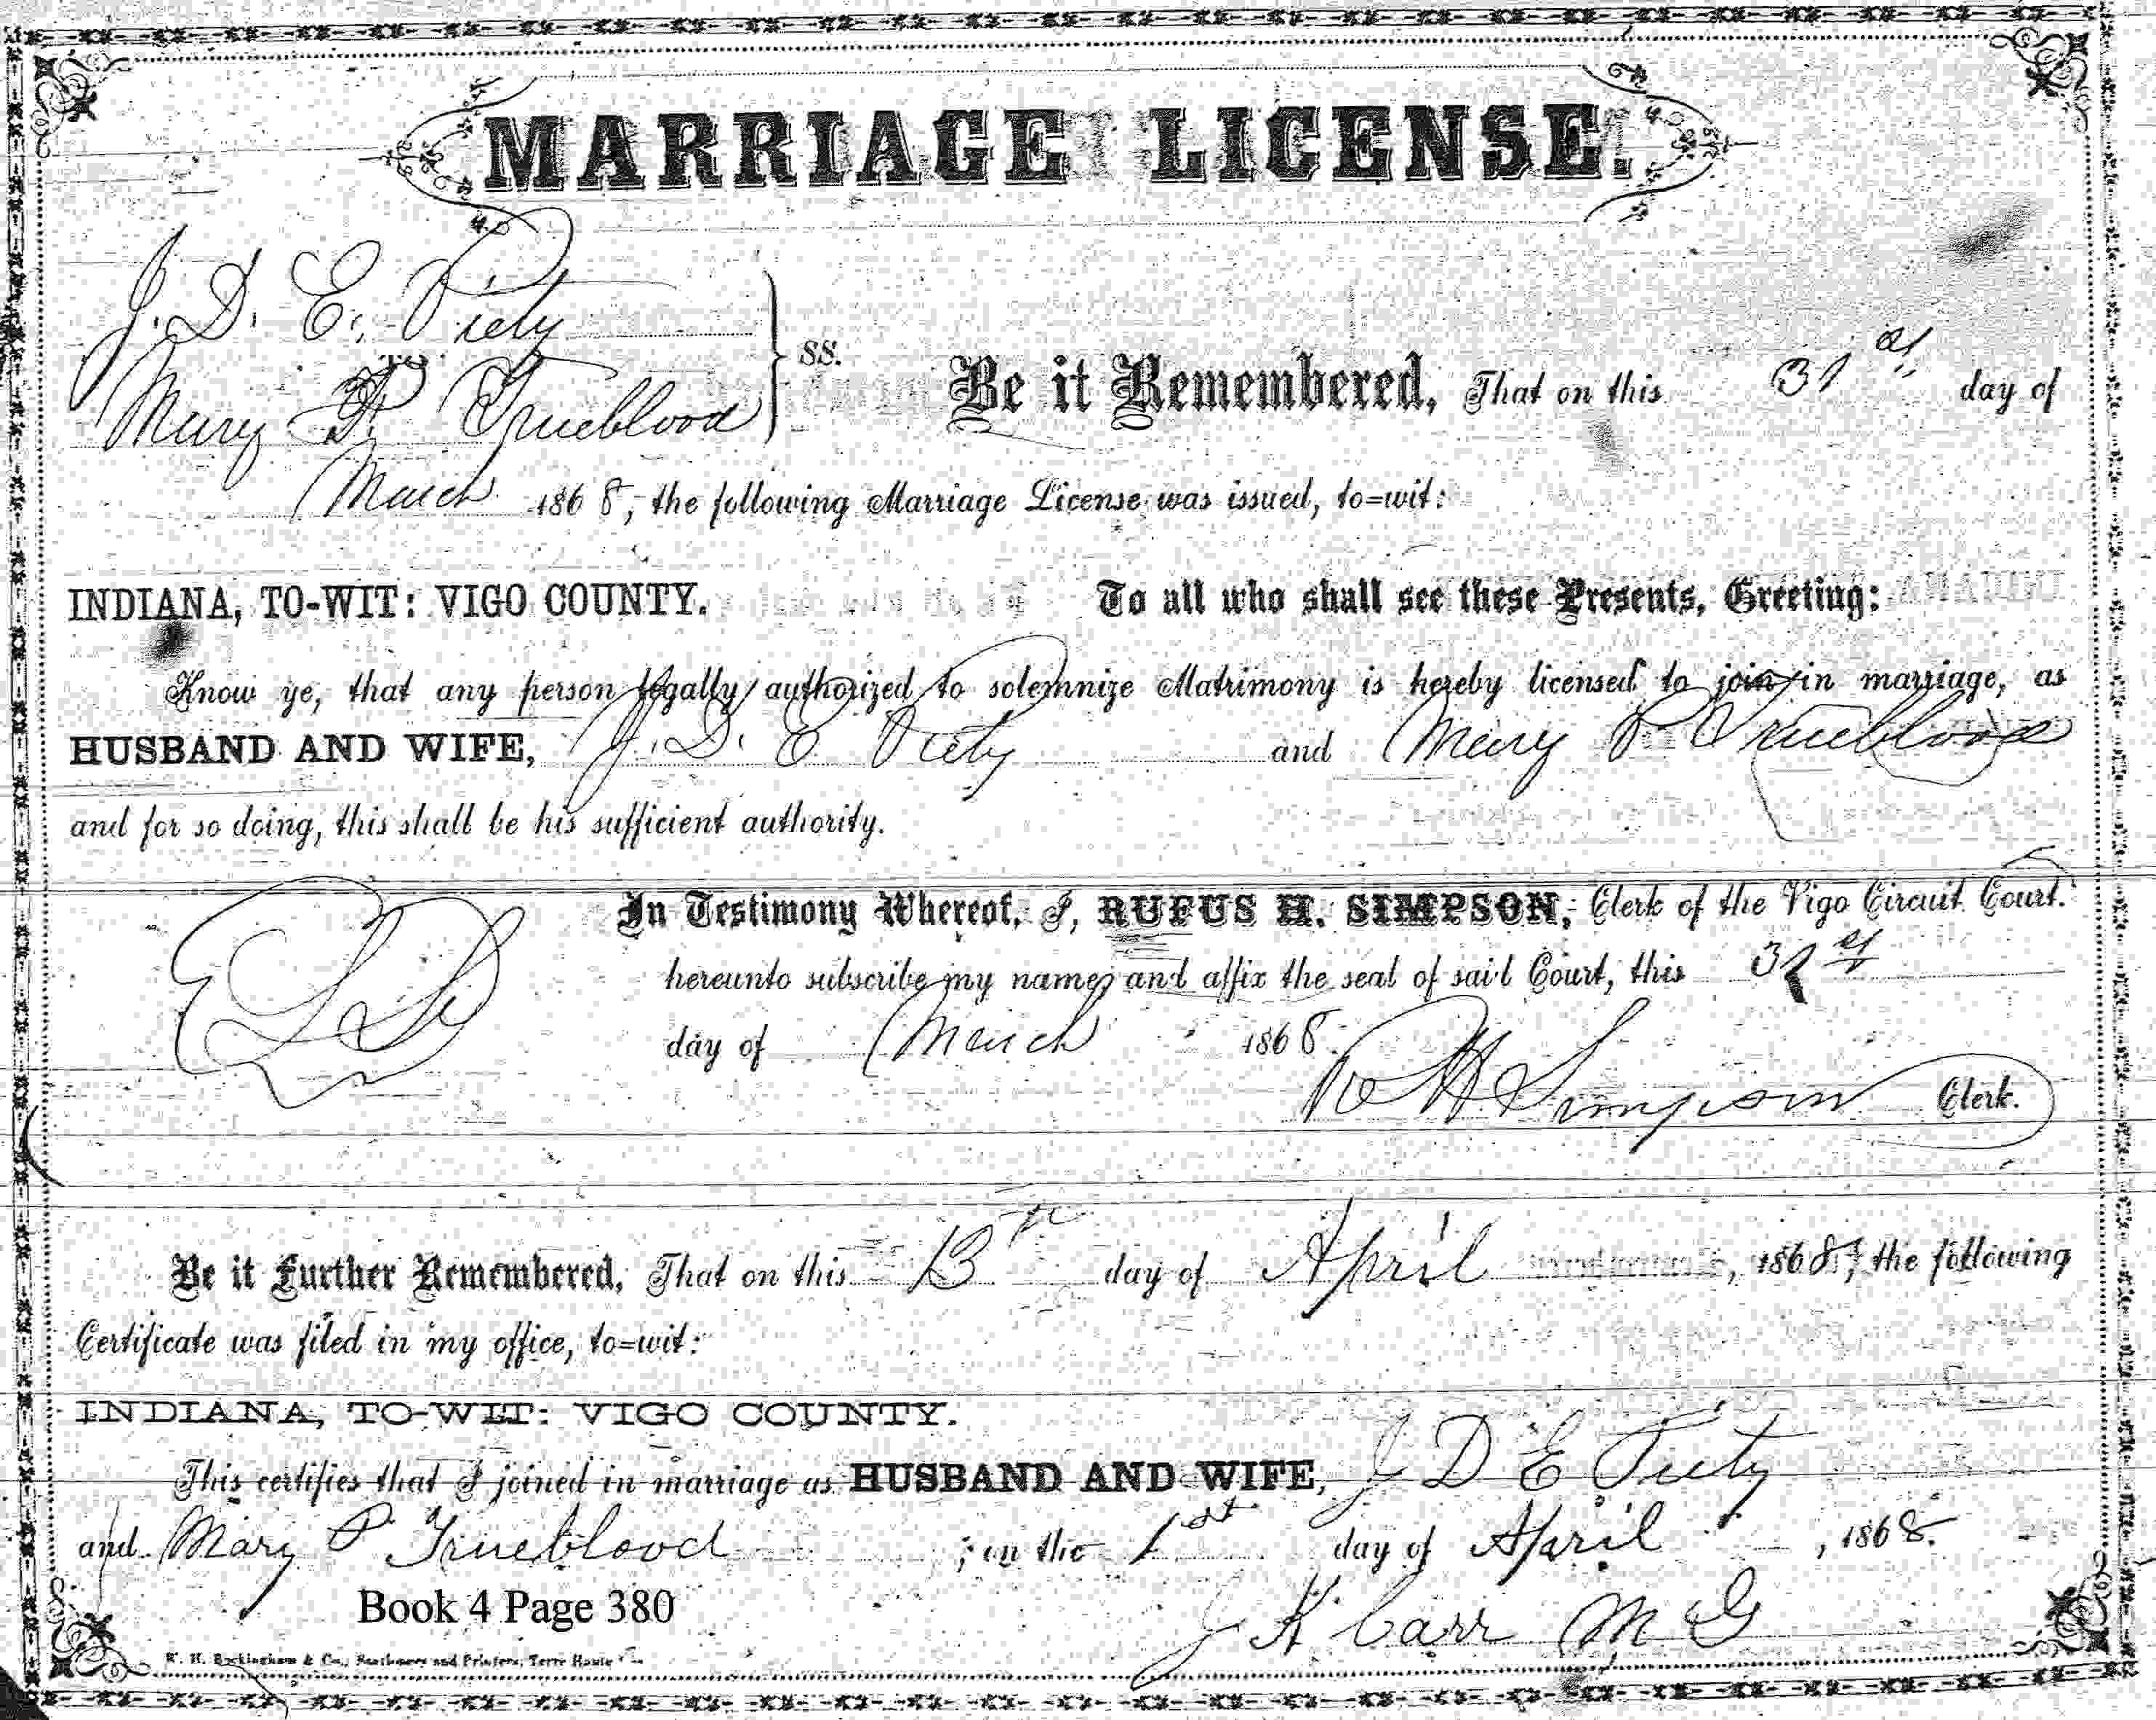 MARRIAGE LICENSE.
J. D. E. Piety
Mary P. Trueblood
} ss. Be it Remembered, That on this 31st day of
March 1868, the following Marriage License was issued, to=wit:
INDIANA, TO-WIT: VIGO COUNTY. To all who shall see these Presents, Greeting:
Know ye, that any person legally authorized to solemnize Matrimony is hereby licensed to join in marriage, as
HUSBAND AND WIFE, J. D. E Piety and Mary P Trueblood
and for so doing, this shall be his sufficient authority.
In Testimony Whereof, I, RUFUS H. SIMPSON, Clerk of the Vigo Circuit Court.
hereunto subscribe my name, and affix the seal of said Court, this 31st
day of March 1868.
R H Simpson Clerk.
Be it Further Remembered, That on this 13th day of April, 1868, the following
Certificate was filed in my office, to=wit:
INDIANA, TO-WIT: VIGO COUNTY.
This certifies that I joined in marriage as HUSBAND AND WIFE, J D E Piety
and Mary P Trueblood, on the 1st day of April, 1868.
Book 4 Page 380
J K Carr M G
& Co., Stationers and Printers, Terre Haute